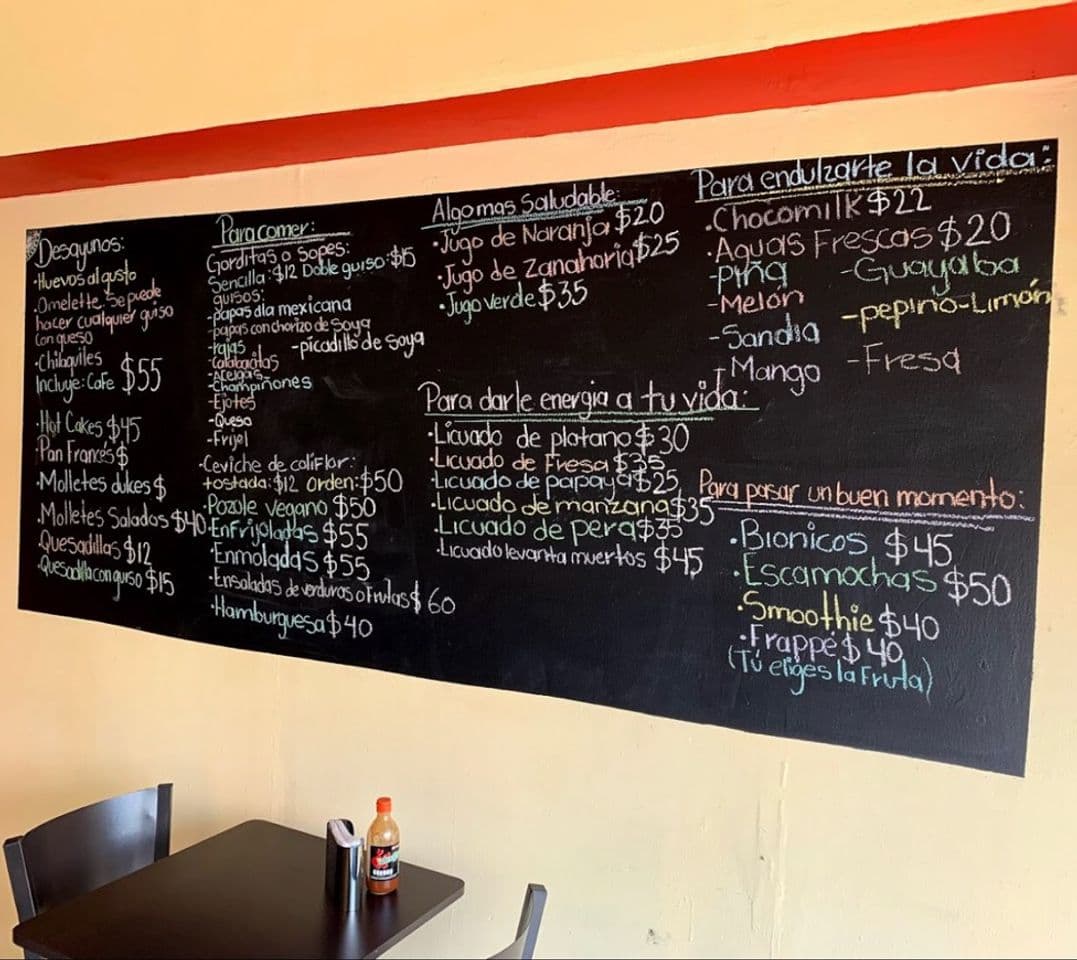 Desayunos:
·Huevos al gusto
·Omelette, Se puede
hacer cualquier guiso
con queso
·Chilaquiles
Incluye: Cafe $55
·Hot Cakes $45
·Pan Francés $
·Molletes dulces $
·Molletes Salados $40
·Quesadillas $12
·Quesadilla con guiso $15
Para comer:
Gorditas o Sopes:
Sencilla: $12 Doble guiso: $15
guisos:
-papas a la mexicana
-papas con chorizo de Soya
-rajas
-picadillo de soya
-Calabacitas
-Acelgas
-Champiñones
-Ejotes
-Queso
-Frijol
·Ceviche de coliflor:
tostada: $12 Orden: $50
·Pozole vegano $50
·Enfrijoladas $55
·Enmoladas $55
·Ensaladas de verduras o Frutas $60
·Hamburguesa $40
Algo mas Saludable:
·Jugo de Naranja $20
·Jugo de Zanahoria $25
·Jugo verde $35
Para darle energia a tu vida:
·Licuado de platano $30
·Licuado de Fresa $35
·Licuado de papaya $25
·Licuado de manzana $35
·Licuado de pera $35
·Licuado levanta muertos $45
Para endulzarte la vida:
·Chocomilk $22
·Aguas Frescas $20
-Piña -Guayaba
-Melón -pepino-Limón
-Sandia -Fresa
-Mango
Para pasar un buen momento:
·Bionicos $45
·Escamochas $50
·Smoothie $40
·Frappé $40
(Tú eliges la Fruta)